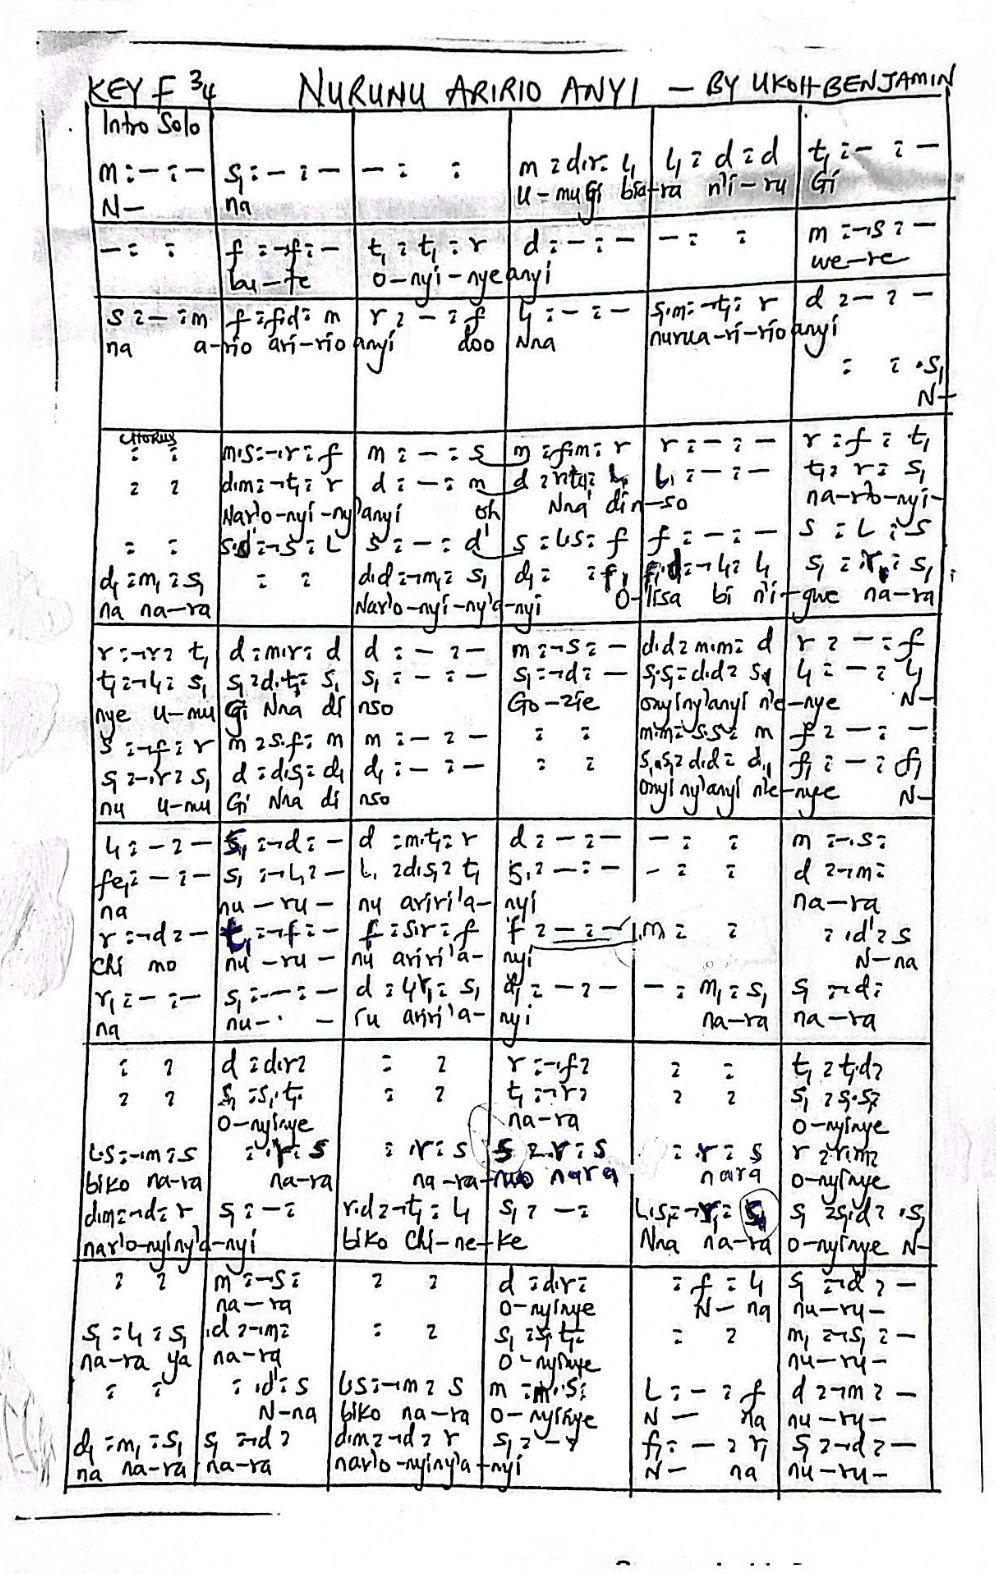 KEY F 3/4 NURUNU ARIRIO ANYI — BY UKOH BENJAMIN
Intro Solo
m : – : – s₁ : – : – – : : m : d.r : l₁ l₁ : d : d t₁ : – : –
N– na U-mu Gi bia-ra n'i-ru Gi
– : : f : –.f : – t₁ : t₁ : r d : – : – – : : m : –.s : –
bu-te o-nyi-nye anyi we-re
s : – : m f : f.d : m r : – : f l₁ : – : – s.m : –.t₁ : r d : – : –
na a-rio ari-rio anyi doo Nna nurua-ri-rio anyi
: : .s₁
N–
CHORUS
: : m.s : –.r : f m : – : s m : f.m : r r : – : – r : f : t₁
: : d.m : –.t₁ : r d : – : m d : r.t₁ : l₁ l₁ : – : – t₁ : r : s₁
Nar'o-nyi-ny'anyi oh Nna di n-so na-r'o-nyi-
: : s.d' : –.s : l s : – : d' s : l.s : f f : – : – s : l : s
d₁ : m₁ : s₁ : : d.d : –.m₁ : s₁ d₁ : : f₁ f₁.d : –.l₁ : l₁ s₁ : r₁ : s₁
na na-ra Nar'o-nyi-ny'a-nyi O-lisa bi n'i-gwe na-ra
r : –.r : t₁ d : m.r : d d : – : – m : –.s : – d.d : m.m : d r : – : f
t₁ : –.l₁ : s₁ s₁ : d.t₁ : s₁ s₁ : – : – s₁ : –.d : – s₁.s₁ : d.d : s₁ l₁ : – : l₁
nye u-mu Gi Nna di nso Go-zie onyiny'anyi n'e-nye N–
s : –.f : r m : s.f : m m : – : – : : m.m : s.s : m f : – : –
s₁ : –.r : s₁ d : d.s₁ : d₁ d₁ : – : – : : s₁.s₁ : d.d : d₁ f₁ : – : f₁
nu u-mu Gi Nna di nso onyi ny'anyi n'e-nye N–
l₁ : – : – s₁ : –.d : – d : m.t₁ : r d : – : – – : : m : –.s :
fe₁ : – : – s₁ : –.l₁ : – l₁ : d.s₁ : t₁ s₁ : – : – – : : d : –.m :
na nu-ru- nu ariri'a-nyi na-ra
r : –.d : – t₁ : –.f : – f : s.r : f f : – : – m : : : .d' : s
chi mo nu-ru- nu ariri'a-nyi N-na
r₁ : – : – s₁ : – : – d : l₁.r₁ : s₁ d₁ : – : – – : m₁ : s₁ s₁ : –.d :
na nu- – ru ariri'a-nyi na-ra na-ra
: : d : d.r : : : r : –.f : : : t₁ : t₁.d :
: : s₁ : s₁.t₁ : : : t₁ : –.r : : : s₁ : s₁.s₁ :
o-nyinye na-ra o-nyinye
l.s : –.m : s : .r : s : .r : s s : .r : s : .r : s r : r.m :
biko na-ra na-ra na-ra nara nara o-nyinye
d.m : –.d : r s₁ : – : r.d : –.t₁ : l₁ s₁ : – : l₁.s₁ : –.r₁ : s₁ s₁ : s₁.d : .s₁
nar'o-nyiny'a-nyi biko Chi-ne-ke Nna na-ra o-nyinye N–
: : m : –.s : : : d : d.r : : f : l₁ s₁ : –.d : –
na-ra o-nyinye N– na nu-ru-
s₁ : l₁ : s₁ .d : –.m : : : s₁ : s₁.t₁ : : : m₁ : –.s₁ : –
na-ra ya na-ra o-nyinye nu-ru-
: : : .d' : s l.s : –.m : s m : –.s : l : – : f d : –.m : –
N-na biko na-ra o-nyinye N– na nu-ru-
d₁ : m₁ : s₁ s₁ : –.d : d.m : –.d : r s₁ : – : f₁ : – : r₁ s₁ : –.d : –
na na-ra na-ra nar'o-nyiny'a-nyi N– na nu-ru-